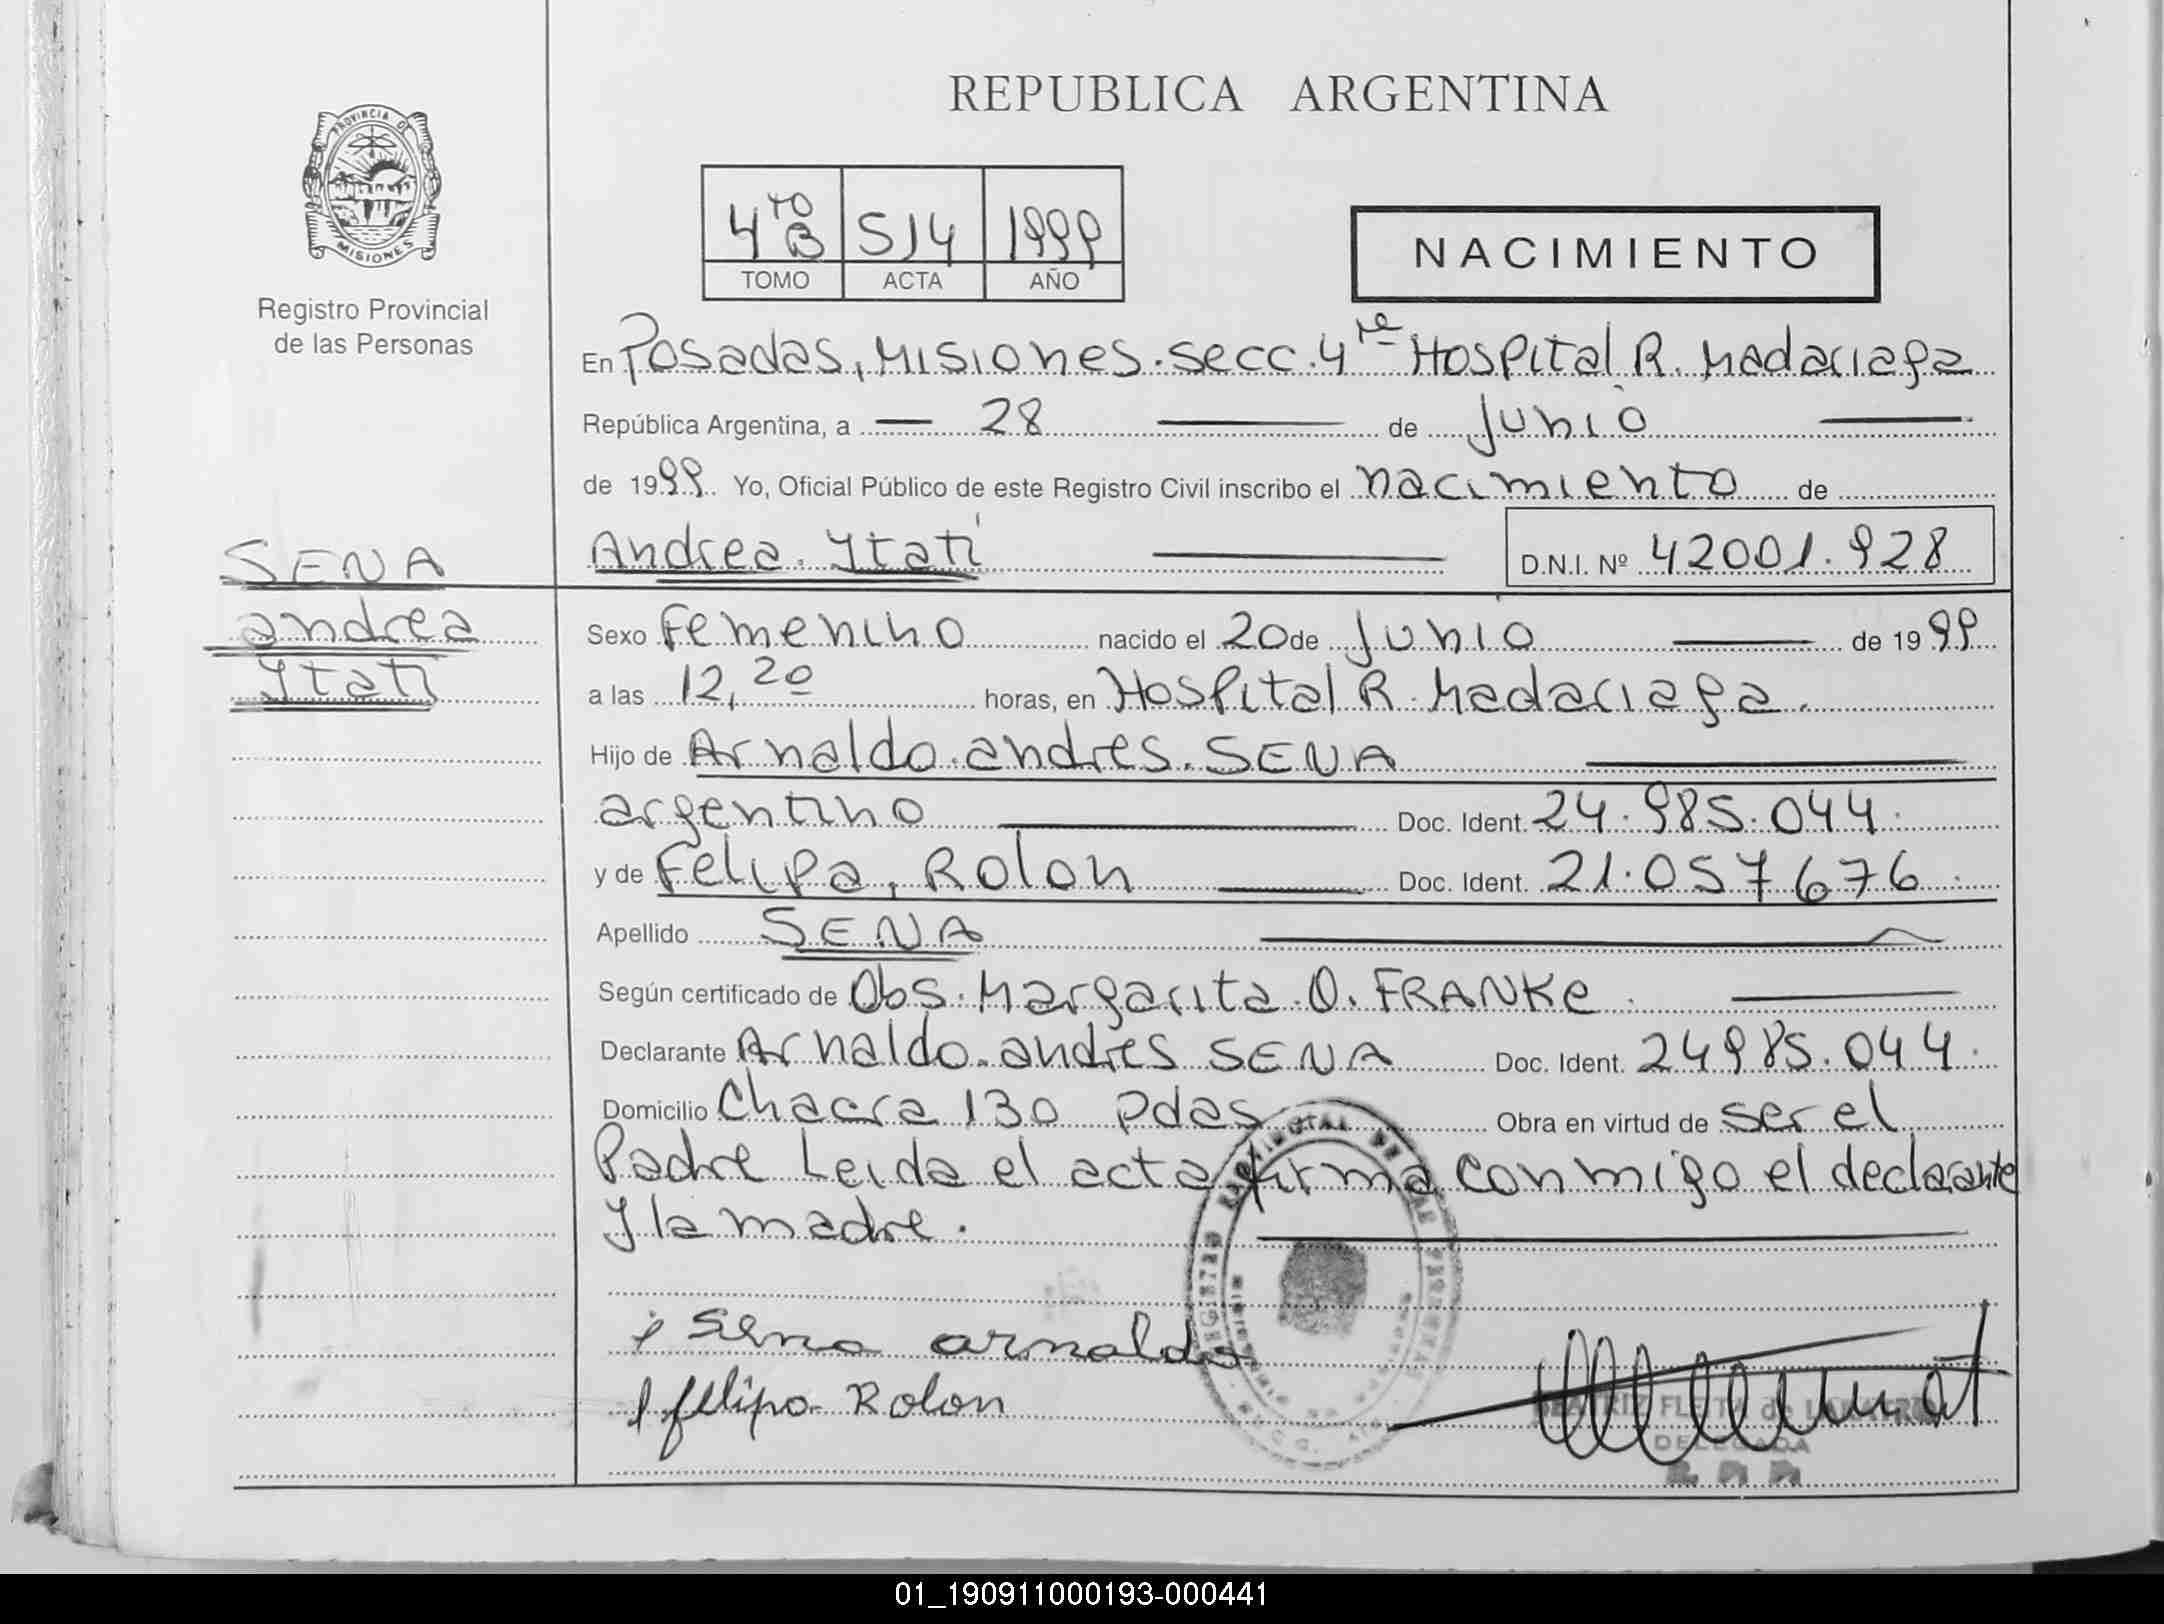 REPUBLICA ARGENTINA
PROVINCIA DE
MISIONES
Registro Provincial
de las Personas
4to B 514 1999
TOMO ACTA AÑO
NACIMIENTO
En Posadas, Misiones. Secc. 4ta Hospital R. Madariaga
República Argentina, a — 28 — de Junio —
de 1999. Yo, Oficial Público de este Registro Civil inscribo el nacimiento de
Andrea Ytatí — D.N.I. Nº 42001.928
SENA
andrea
Ytatí
Sexo Femenino nacido el 20 de Junio — de 1999
a las 12,20 horas, en Hospital R. Madariaga.
Hijo de Arnaldo andres SENA —
argentino — Doc. Ident. 24.985.044.
y de Felipa, Rolon — Doc. Ident. 21.057676.
Apellido SENA —
Según certificado de Obs. Margarita O. FRANKe. —
Declarante Arnaldo andres SENA Doc. Ident. 24985.044.
Domicilio Chacra 130 Pdas Obra en virtud de ser el
Padre Leida el acta firma conmigo el declarante
Y la madre. —
Sena arnaldo
felipa Rolon
BEATRIZ FLEITA de
DELEGADA
01_190911000193-000441